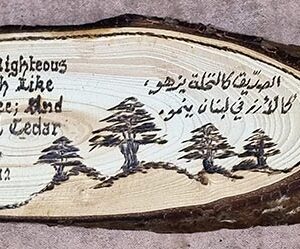 ighteous
h like
ee; And
Cedar
الصدّيق كالنخلة يزهو،
كالأرز في لبنان ينمو.